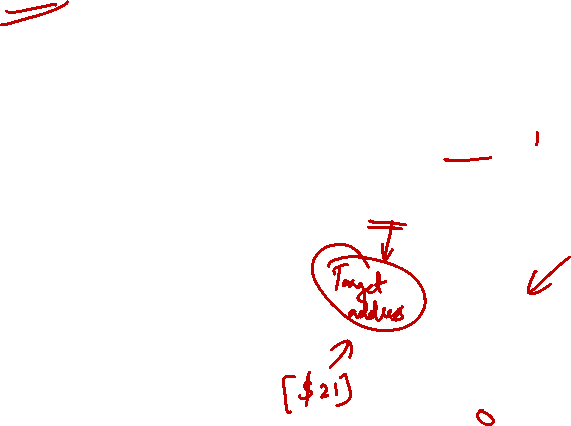 Target
address
[$21]
0